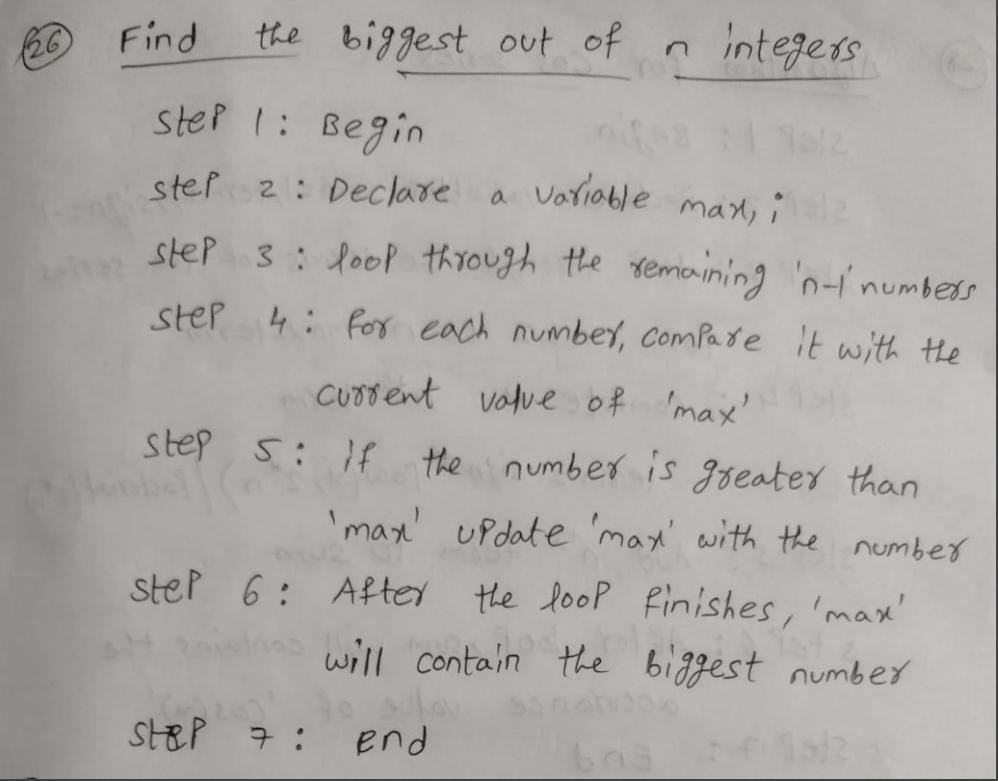 26 Find the biggest out of n integers
step 1: Begin
step 2: Declare a variable max, i
step 3: loop through the remaining 'n-1' numbers
step 4: for each number, compare it with the
current value of 'max'
step 5: if the number is greater than
'max' update 'max' with the number
step 6: After the loop finishes, 'max'
will contain the biggest number
step 7: end